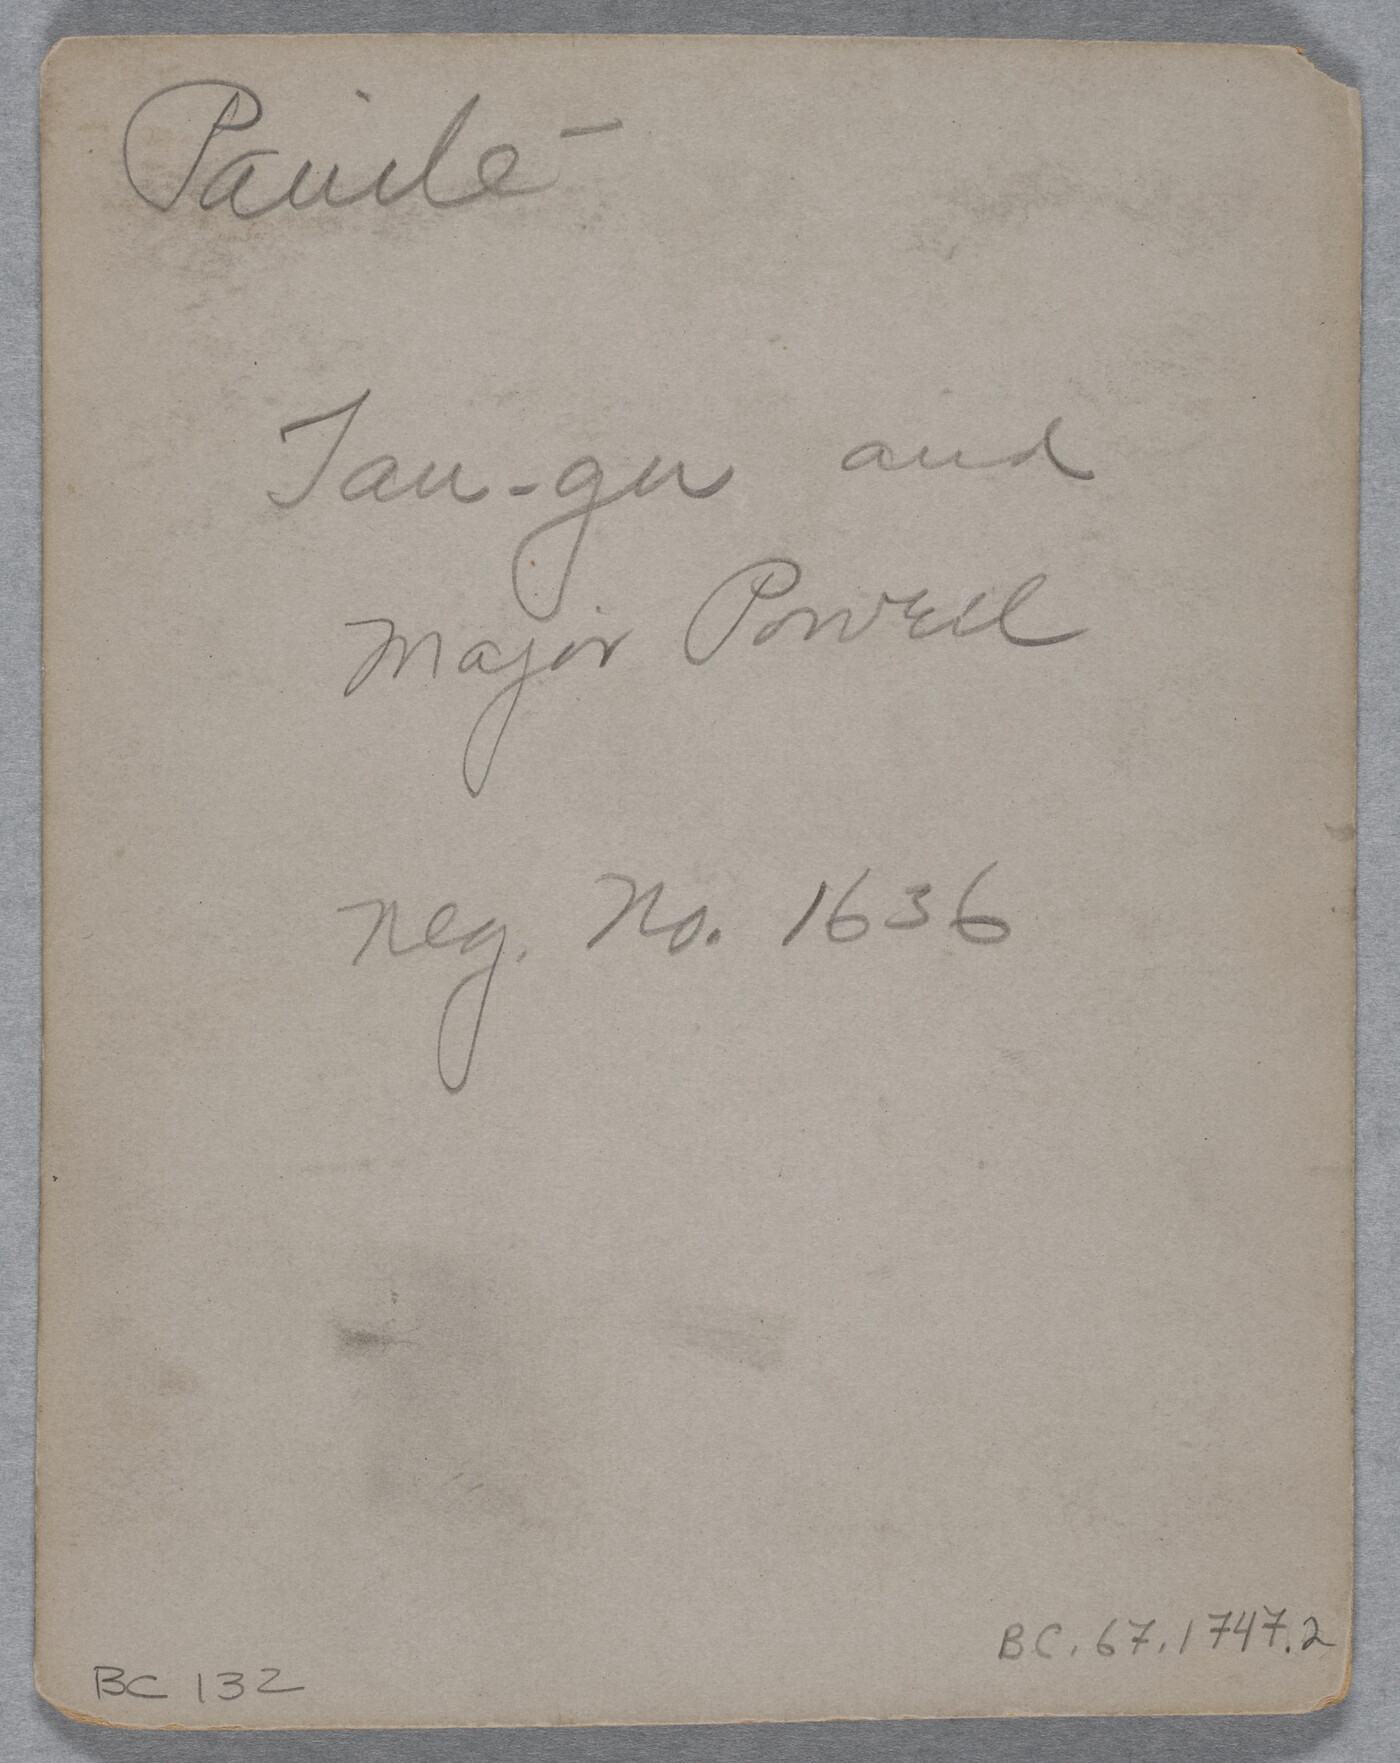 Paiute
Tau-gu and
Major Powell
Neg. No. 1636
BC.67.1747.2
BC 132